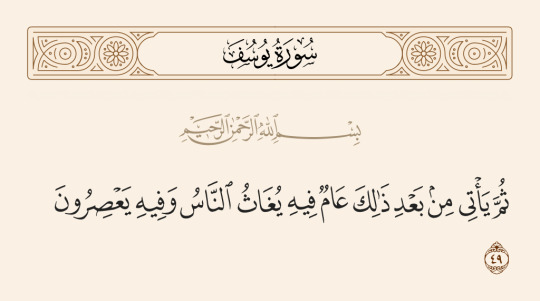 سُورَةُ يُوسُفَ
بِسْمِ اللَّهِ الرَّحْمَٰنِ الرَّحِيمِ
ثُمَّ يَأْتِى مِنۢ بَعْدِ ذَٰلِكَ عَامٌ فِيهِ يُغَاثُ ٱلنَّاسُ وَفِيهِ يَعْصِرُونَ
٤٩